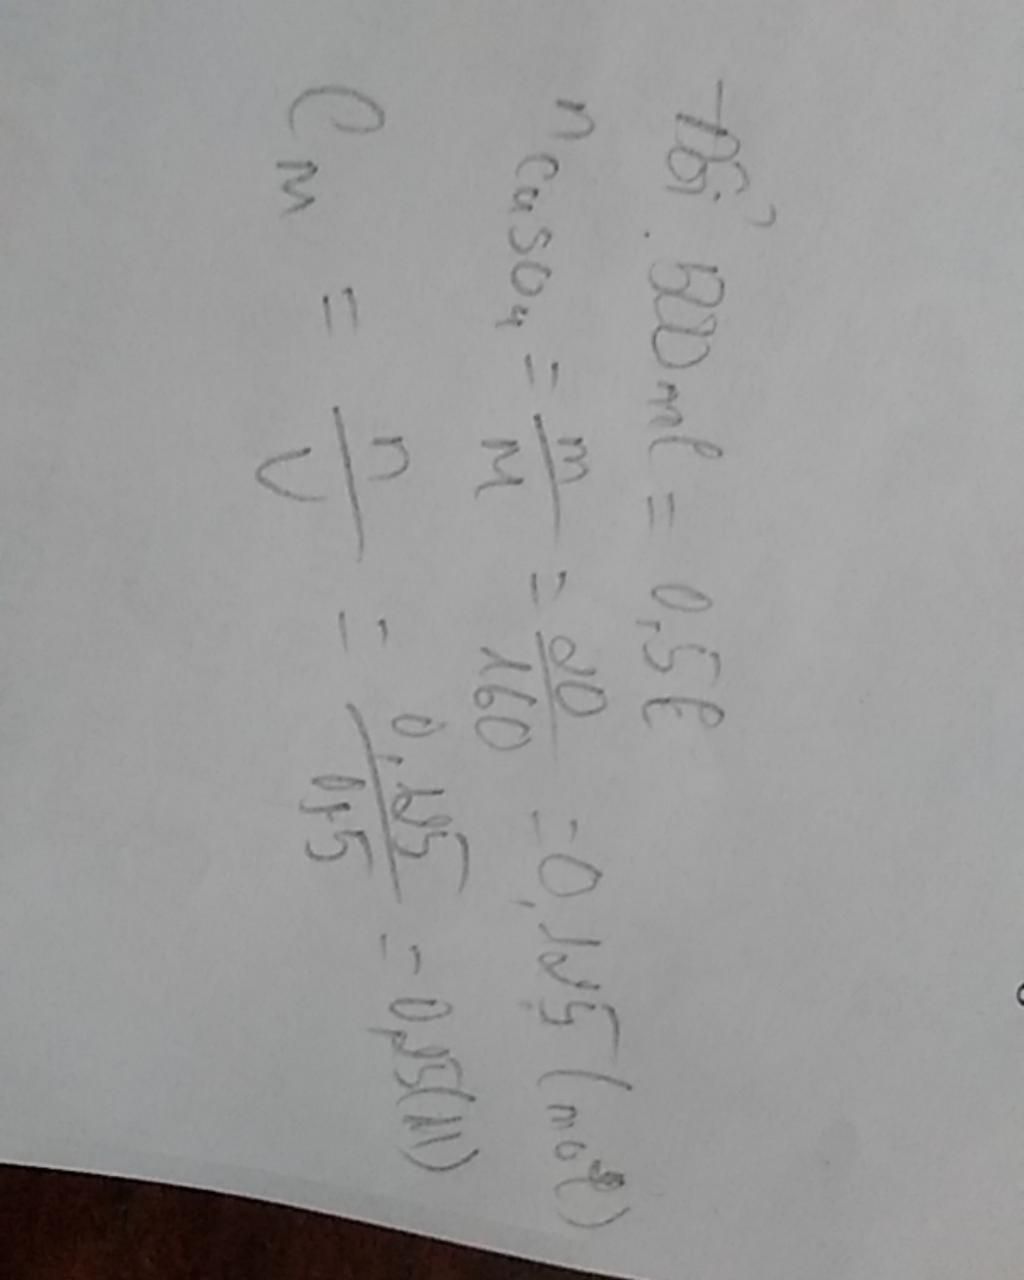 - Đổi 500ml = 0,5l
nCuSO4 = m/M = 20/160 = 0,125 (mol)
CM = n/V = 0,125/0,5 = 0,25(M)